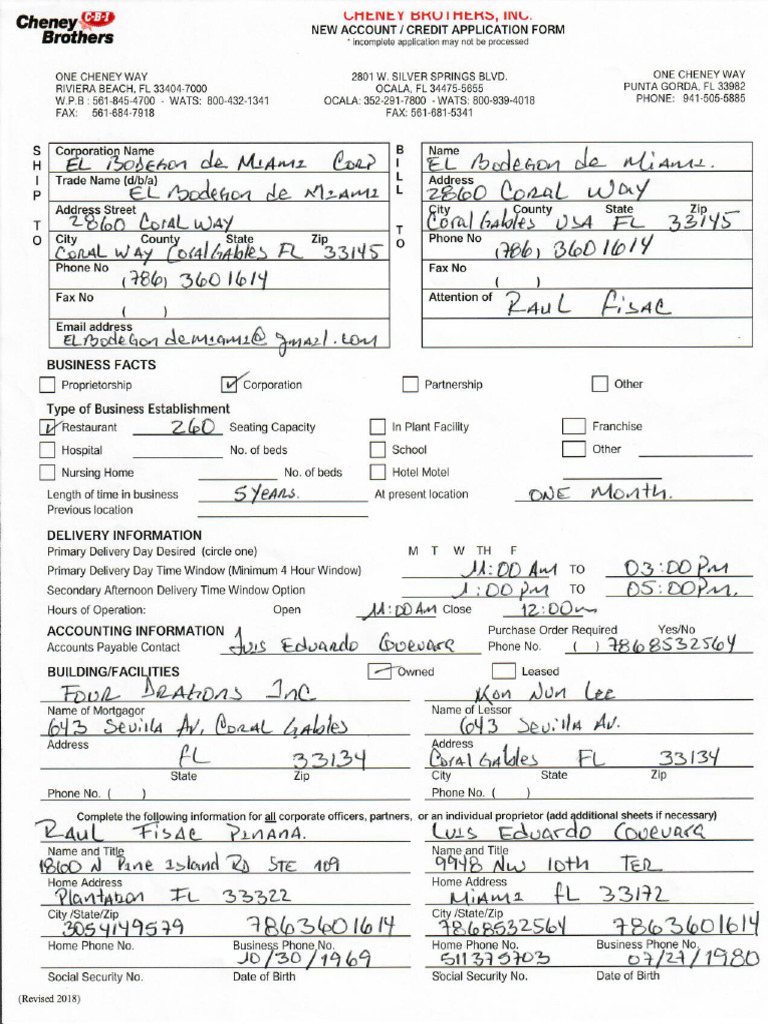 Cheney Brothers
C-B-I
CHENEY BROTHERS, INC.
NEW ACCOUNT / CREDIT APPLICATION FORM
* incomplete application may not be processed
ONE CHENEY WAY
RIVIERA BEACH, FL 33404-7000
W.P.B : 561-845-4700 - WATS: 800-432-1341
FAX: 561-684-7918
2801 W. SILVER SPRINGS BLVD.
OCALA, FL 34475-5655
OCALA: 352-291-7800 - WATS: 800-939-4018
FAX: 561-681-5341
ONE CHENEY WAY
PUNTA GORDA, FL 33982
PHONE: 941-505-5885
SHIP TO
Corporation Name
EL BODEGON de MIAMI CORP
Trade Name (d/b/a)
EL BODEGON de MIAMI
Address Street
2860 CORAL WAY
City County State Zip
CORAL WAY CORAL GABLES FL 33145
Phone No
(786) 3601614
Fax No
( )
Email address
ELBODEGON demiami@gmail.com
BILL TO
Name
EL BODEGON de MIAMI.
Address
2860 CORAL WAY
City County State Zip
CORAL GABLES USA FL 33145
Phone No
(786) 3601614
Fax No
( )
Attention of RAUL FISAC
BUSINESS FACTS
Proprietorship ✓ Corporation Partnership Other
Type of Business Establishment
✓ Restaurant 260 Seating Capacity In Plant Facility Franchise
Hospital No. of beds School Other
Nursing Home No. of beds Hotel Motel
Length of time in business 5 YEARS. At present location ONE MONTH.
Previous location
DELIVERY INFORMATION
Primary Delivery Day Desired (circle one) M T W TH F
Primary Delivery Day Time Window (Minimum 4 Hour Window) 11:00 AM TO 03:00 PM
Secondary Afternoon Delivery Time Window Option 1:00 PM TO 05:00 PM.
Hours of Operation: Open 11:00 AM Close 12:00
ACCOUNTING INFORMATION Purchase Order Required Yes/No
Accounts Payable Contact Luis Eduardo Guevara Phone No. ( ) 7868532564
BUILDING/FACILITIES ✓ Owned Leased
FOUR DRAGONS INC
Name of Mortgagor
643 Sevilla AV, CORAL GABLES
Address
FL 33134
State Zip
Phone No. ( )
Kon Nun Lee
Name of Lessor
643 Sevilla AV.
Address
CORAL GABLES FL 33134
City State Zip
Phone No. ( )
Complete the following information for all corporate officers, partners, or an individual proprietor (add additional sheets if necessary)
RAUL FISAC PINANA.
Name and Title
1860 N Pine Island RD STE 109
Home Address
Plantation FL 33322
City /State/Zip
3054149579 7863601614
Home Phone No. Business Phone No.
10/30/1969
Social Security No. Date of Birth
LUIS EDUARDO GUEVARA
Name and Title
9948 NW 10th TER
Home Address
MIAMI FL 33172
City /State/Zip
7868532564 7863601614
Home Phone No. Business Phone No.
511375703 07/27/1980
Social Security No. Date of Birth
(Revised 2018)